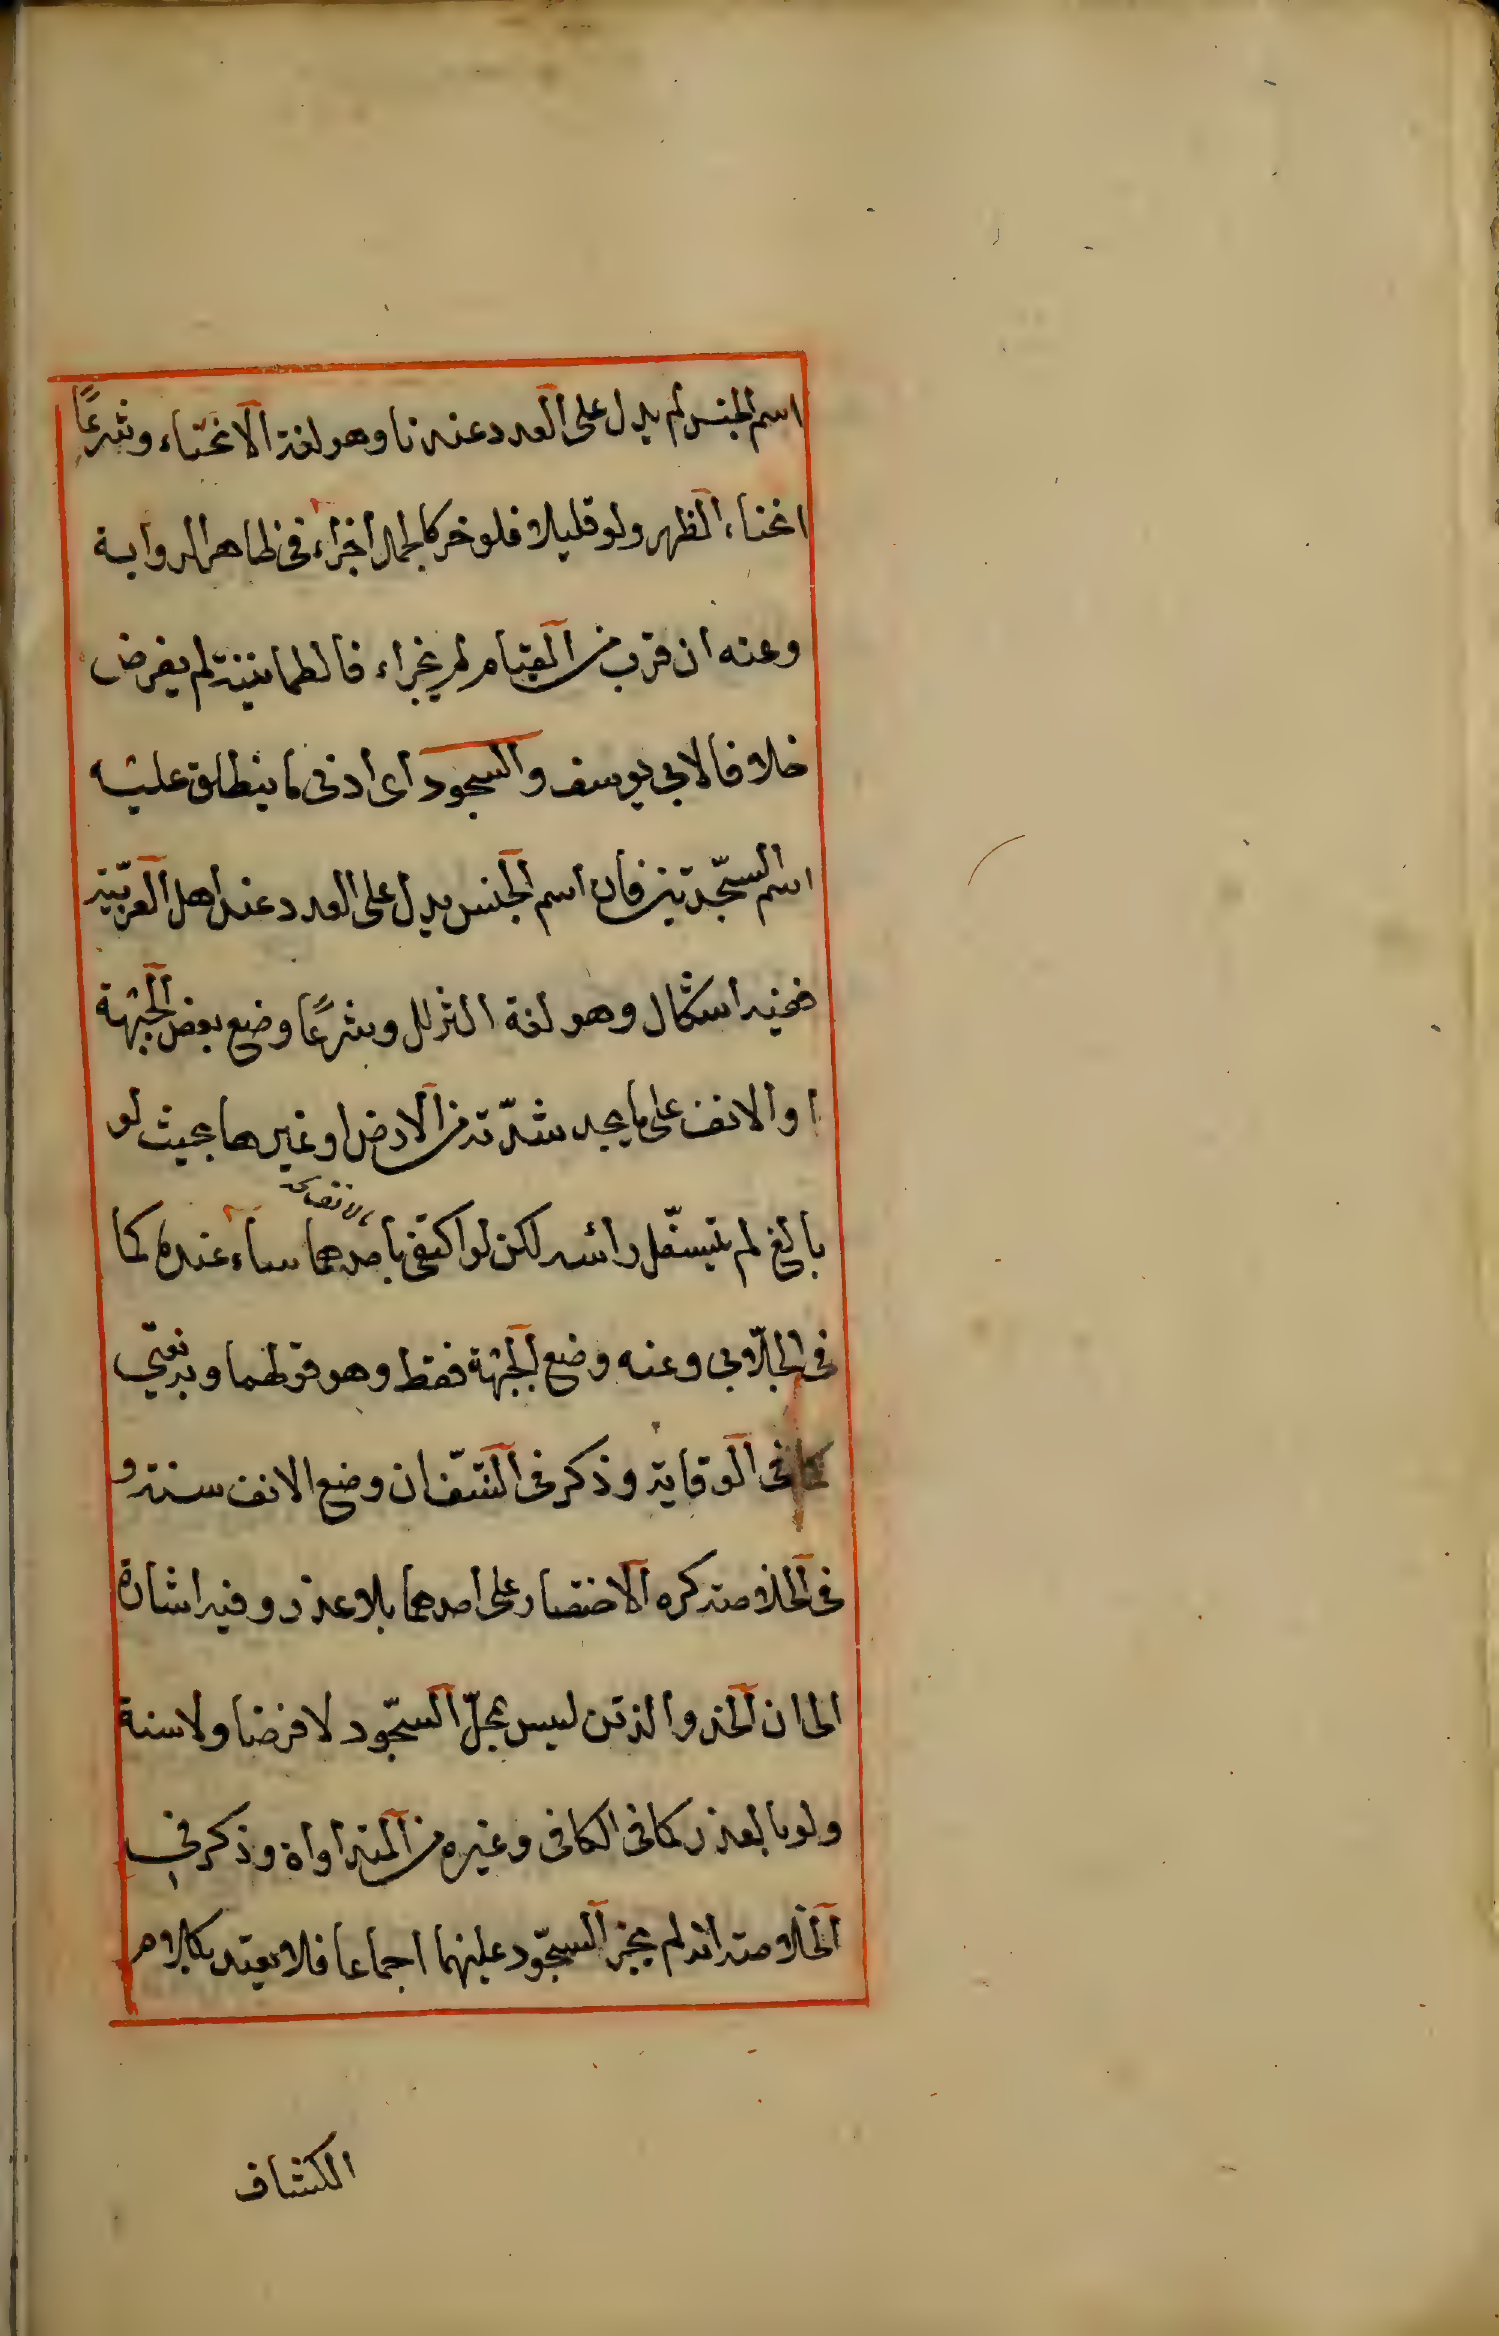 اسم الجنس لم يدل على العدد عندنا وهو لغة الانحناء وشرعًا
انحناء الظهر ولو قليلا فلو خر كالجمل اجزاء في ظاهر الرواية
وعنه ان قرب من القيام لم يجزاء فالطمانينة لم يفرض
خلافا لابي يوسف والسجود اى ادنى ما ينطلق عليه
اسم السجدتين فان اسم الجنس يدل على العدد عند اهل العربية
ففيه اشكال وهو لغة التزلل وشرعًا وضع بعض الجبهة
او الانف على ما يجد شدّته من الارض او غيرها بحيث لو
بالغ لم يتسفّل رأسه لكن لو اكتفى باحدهما ساء عنده كما
بالانف
في الجلّابى وعنه وضع الجبهة فقط وهو قولهما وبه نفتى
كما فى الوقاية وذكر فى النتف ان وضع الانف سنة و
فى الخلاصة كره الاختصار على احدهما بلا عذر وفيه اشارة
الى ان الخد والذقن ليس بمحلّ السجّود لا فرضا ولا سنة
ولو بالعذر كما فى الكافى وغيره من المتداولة وذكر في
الخلاصة انه لم يجز السجّود عليهما اجماعا فلا يعتد بكلام
الكشاف